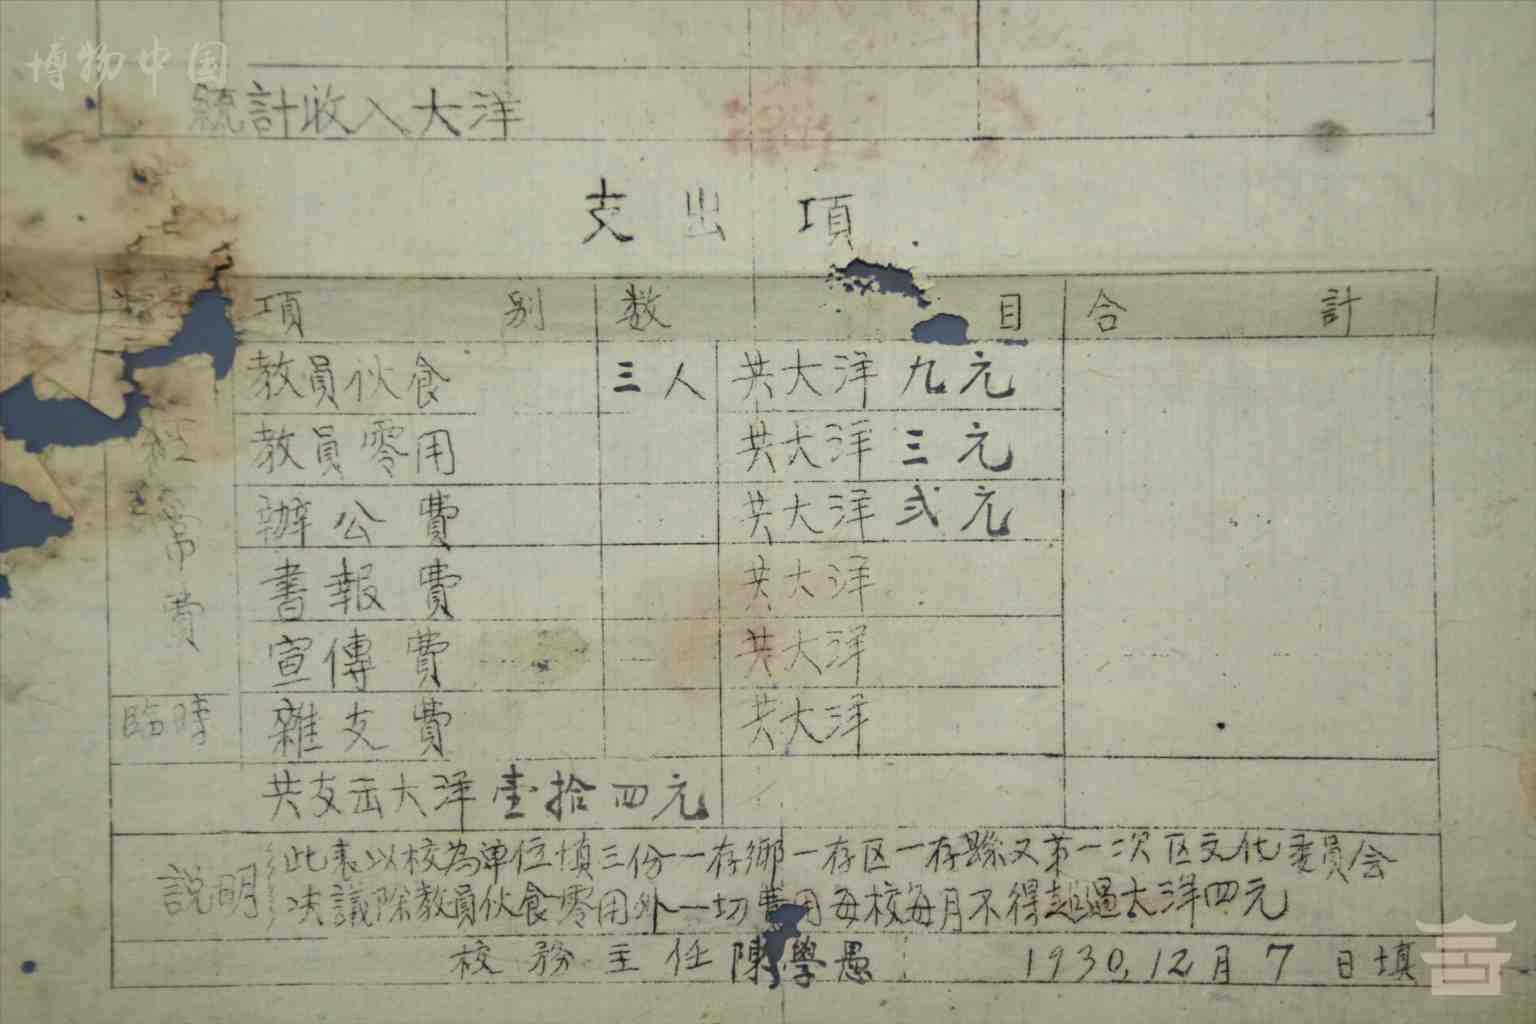 博物中国
統計收入大洋
支出項
項別 数目 合計
經常費
教員伙食 三人 共大洋九元
教員零用 共大洋三元
辦公費 共大洋弍元
書報費 共大洋
宣傳費 共大洋
臨時 雜支費 共大洋
共支出大洋壹拾四元
説明 此表以校為单位填三份一存鄉一存区一存縣又第一次区文化委員会
决議除教員伙食零用外一切費用每校每月不得超過大洋四元
校務主任陳學愚 1930,12月7日填